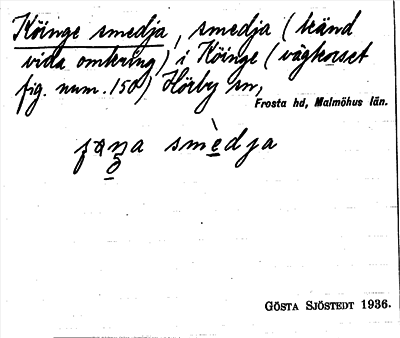 Köinge smedja, smedja (känd
vida omkring) i Köinge (vägkorset
fig. num. 150) Hörby sn,
Frosta hd, Malmöhus län.
smèdja
GÖSTA SJÖSTEDT 1936.